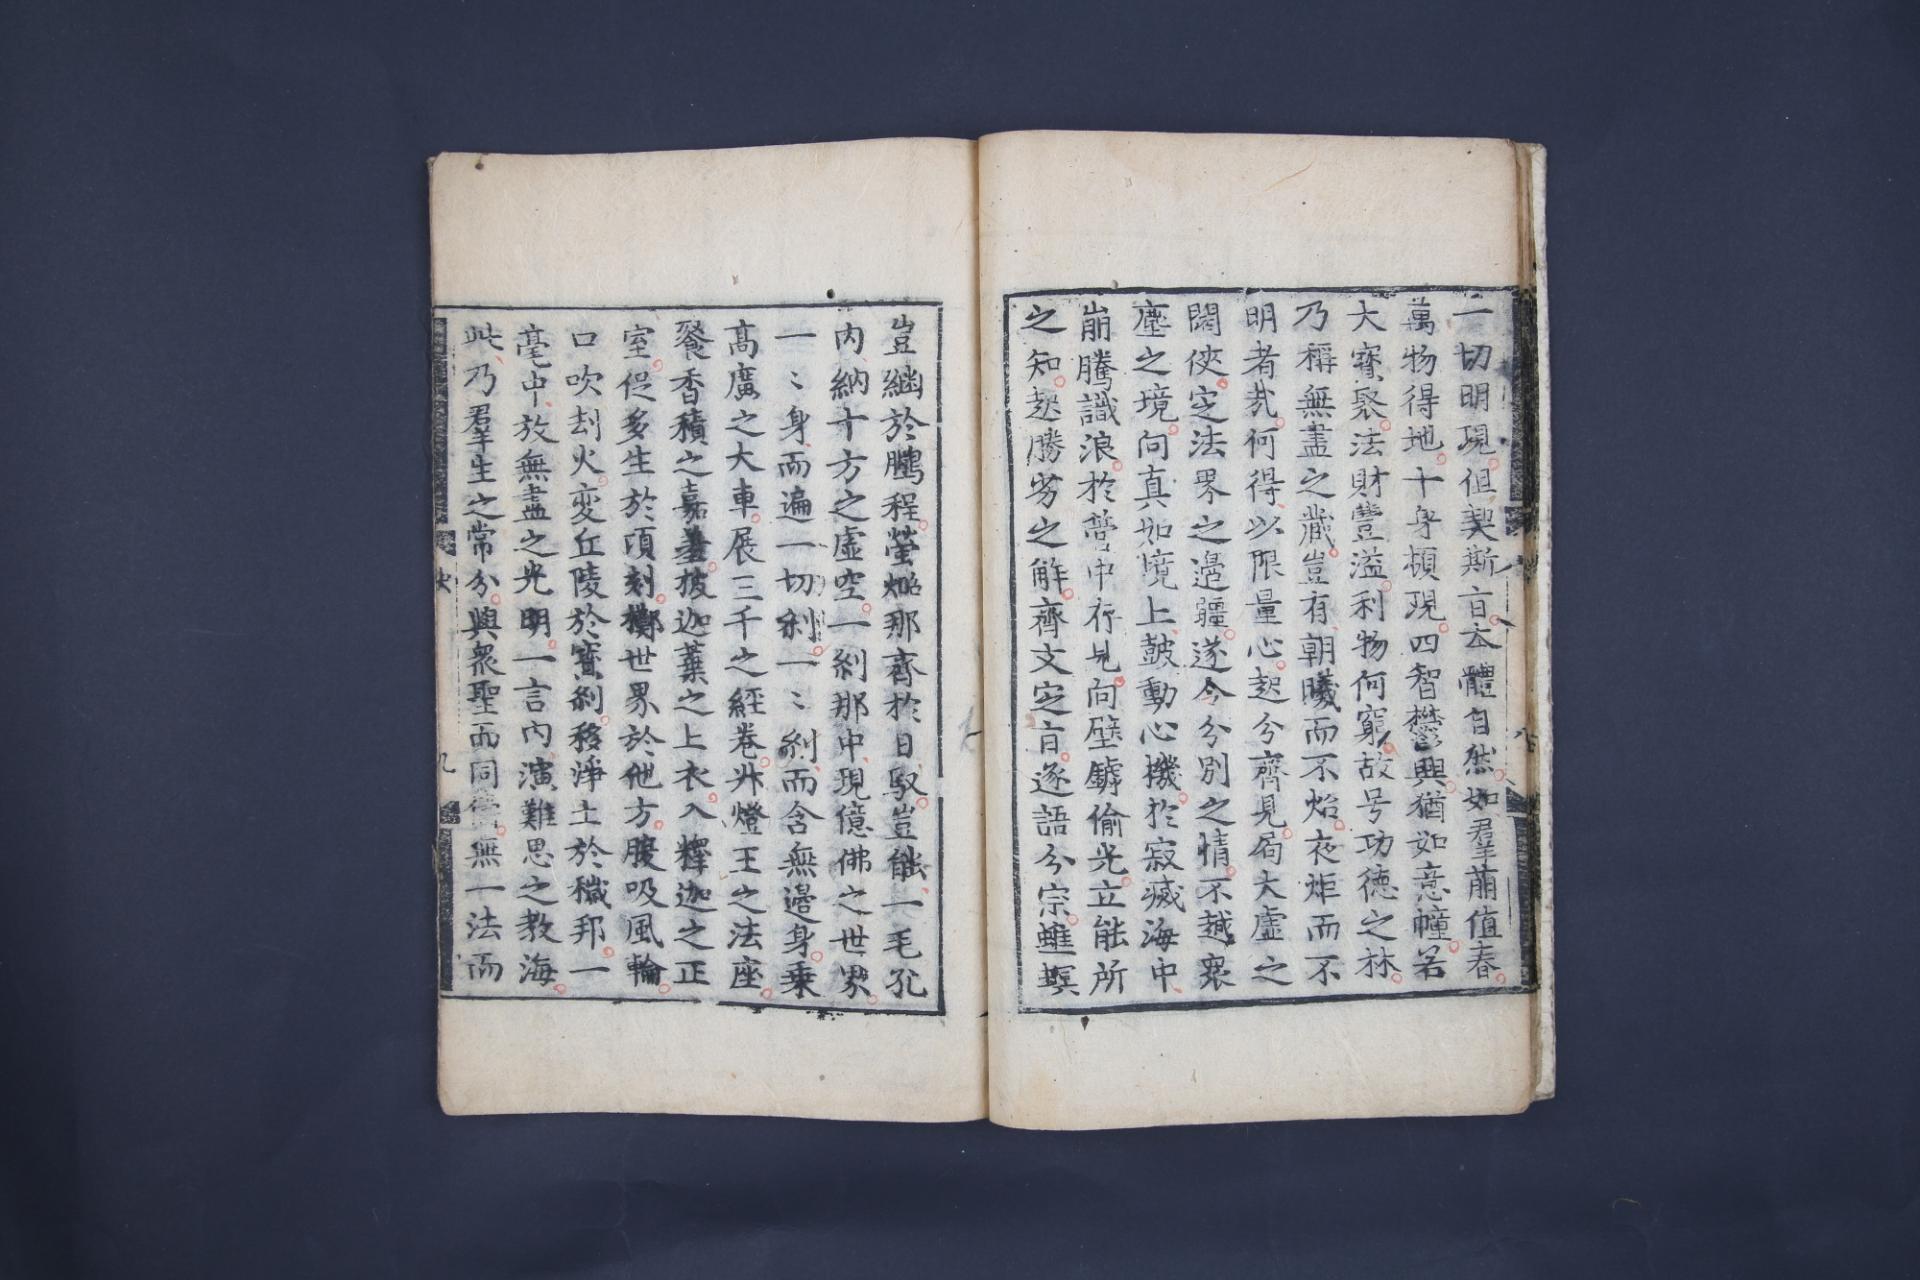 一切明現但契斯旨大體自然如羣萠值春
萬物得地十身頓現四智欝興猶如意幢若
大寳聚法財豐溢利物何窮故号功德之林
乃稱無盡之藏豈有朝曦而不炤夜炬而不
明者㢤何得以限量心起分齊見局大虛之
闊俠定法界之邉疆遂令分別之情不越衆
塵之境向真如境上鼓動心機於寂滅海中
崩騰識浪於管中存見向壁罅偷光立能所
之知起勝劣之解齊文定旨逐語分宗蟭螟
豈繼於鵬程螢𤇆那齊於日馭豈能一毛孔
內納十方之虛空一剎那中現億佛之世界
一〻身而遍一切剎一〻剎而含無邉身乘
髙廣之大車展三千之經卷廾燈王之法座
飡香積之嘉羞披迦葉之上衣入釋迦之正
室促多生於頃刻擲世界於他方腹吸風輪
口吹刼火変丘陵於寳剎移淨土於穢邦一
毫中放無盡之光明一言內演難思之教海
此乃羣生之常分與衆聖而同
無一法而